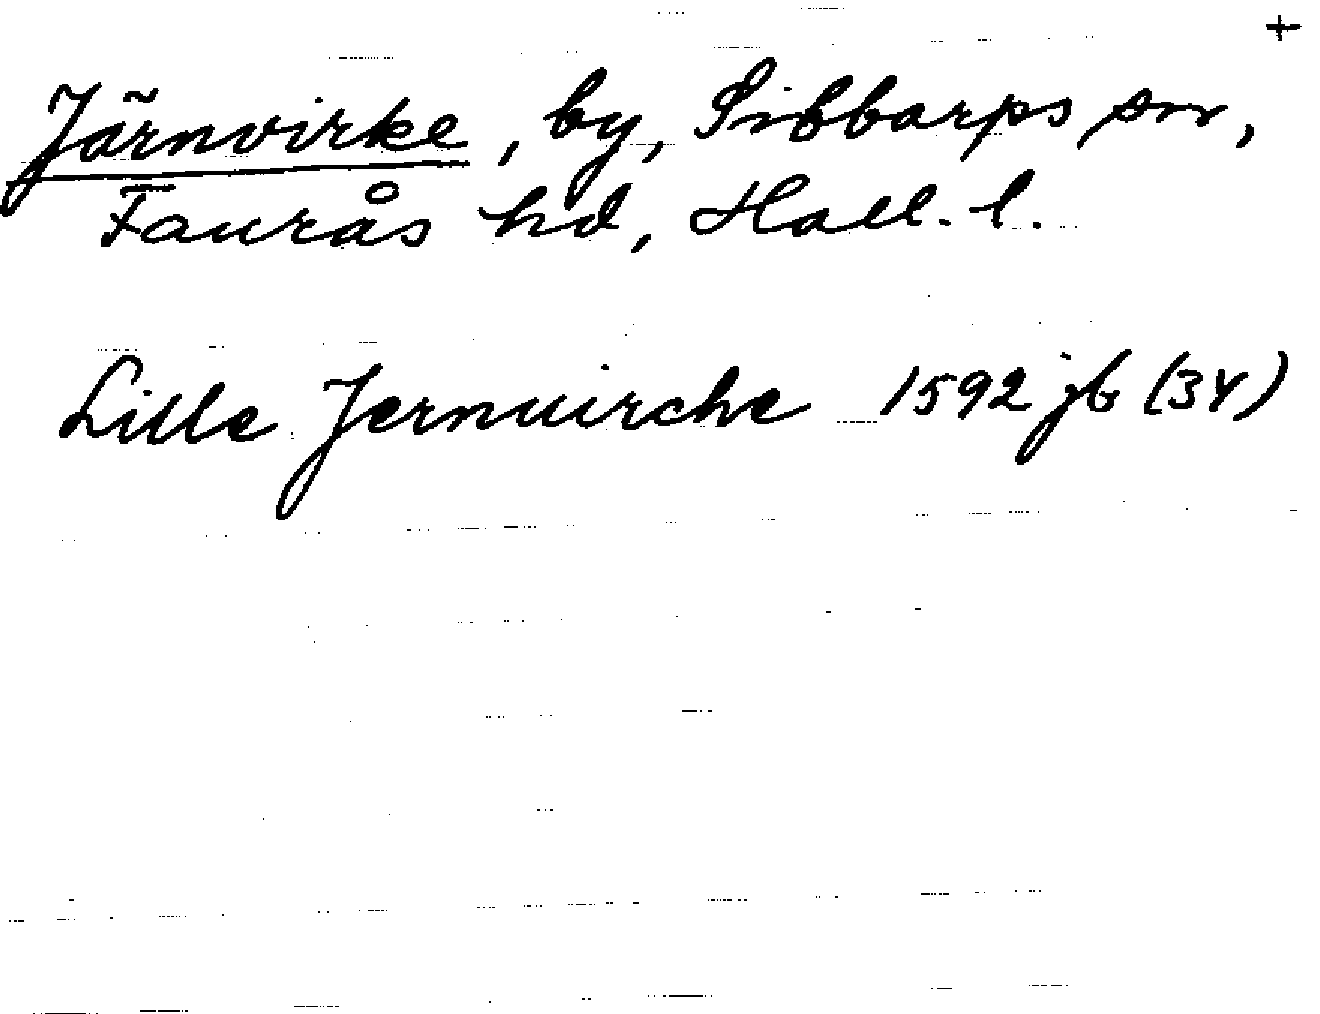 +
Järnvirke, by, Sibbarps sn,
Faurås hd, Hall. l.
Lille Jernuirche 1592 jb (34)